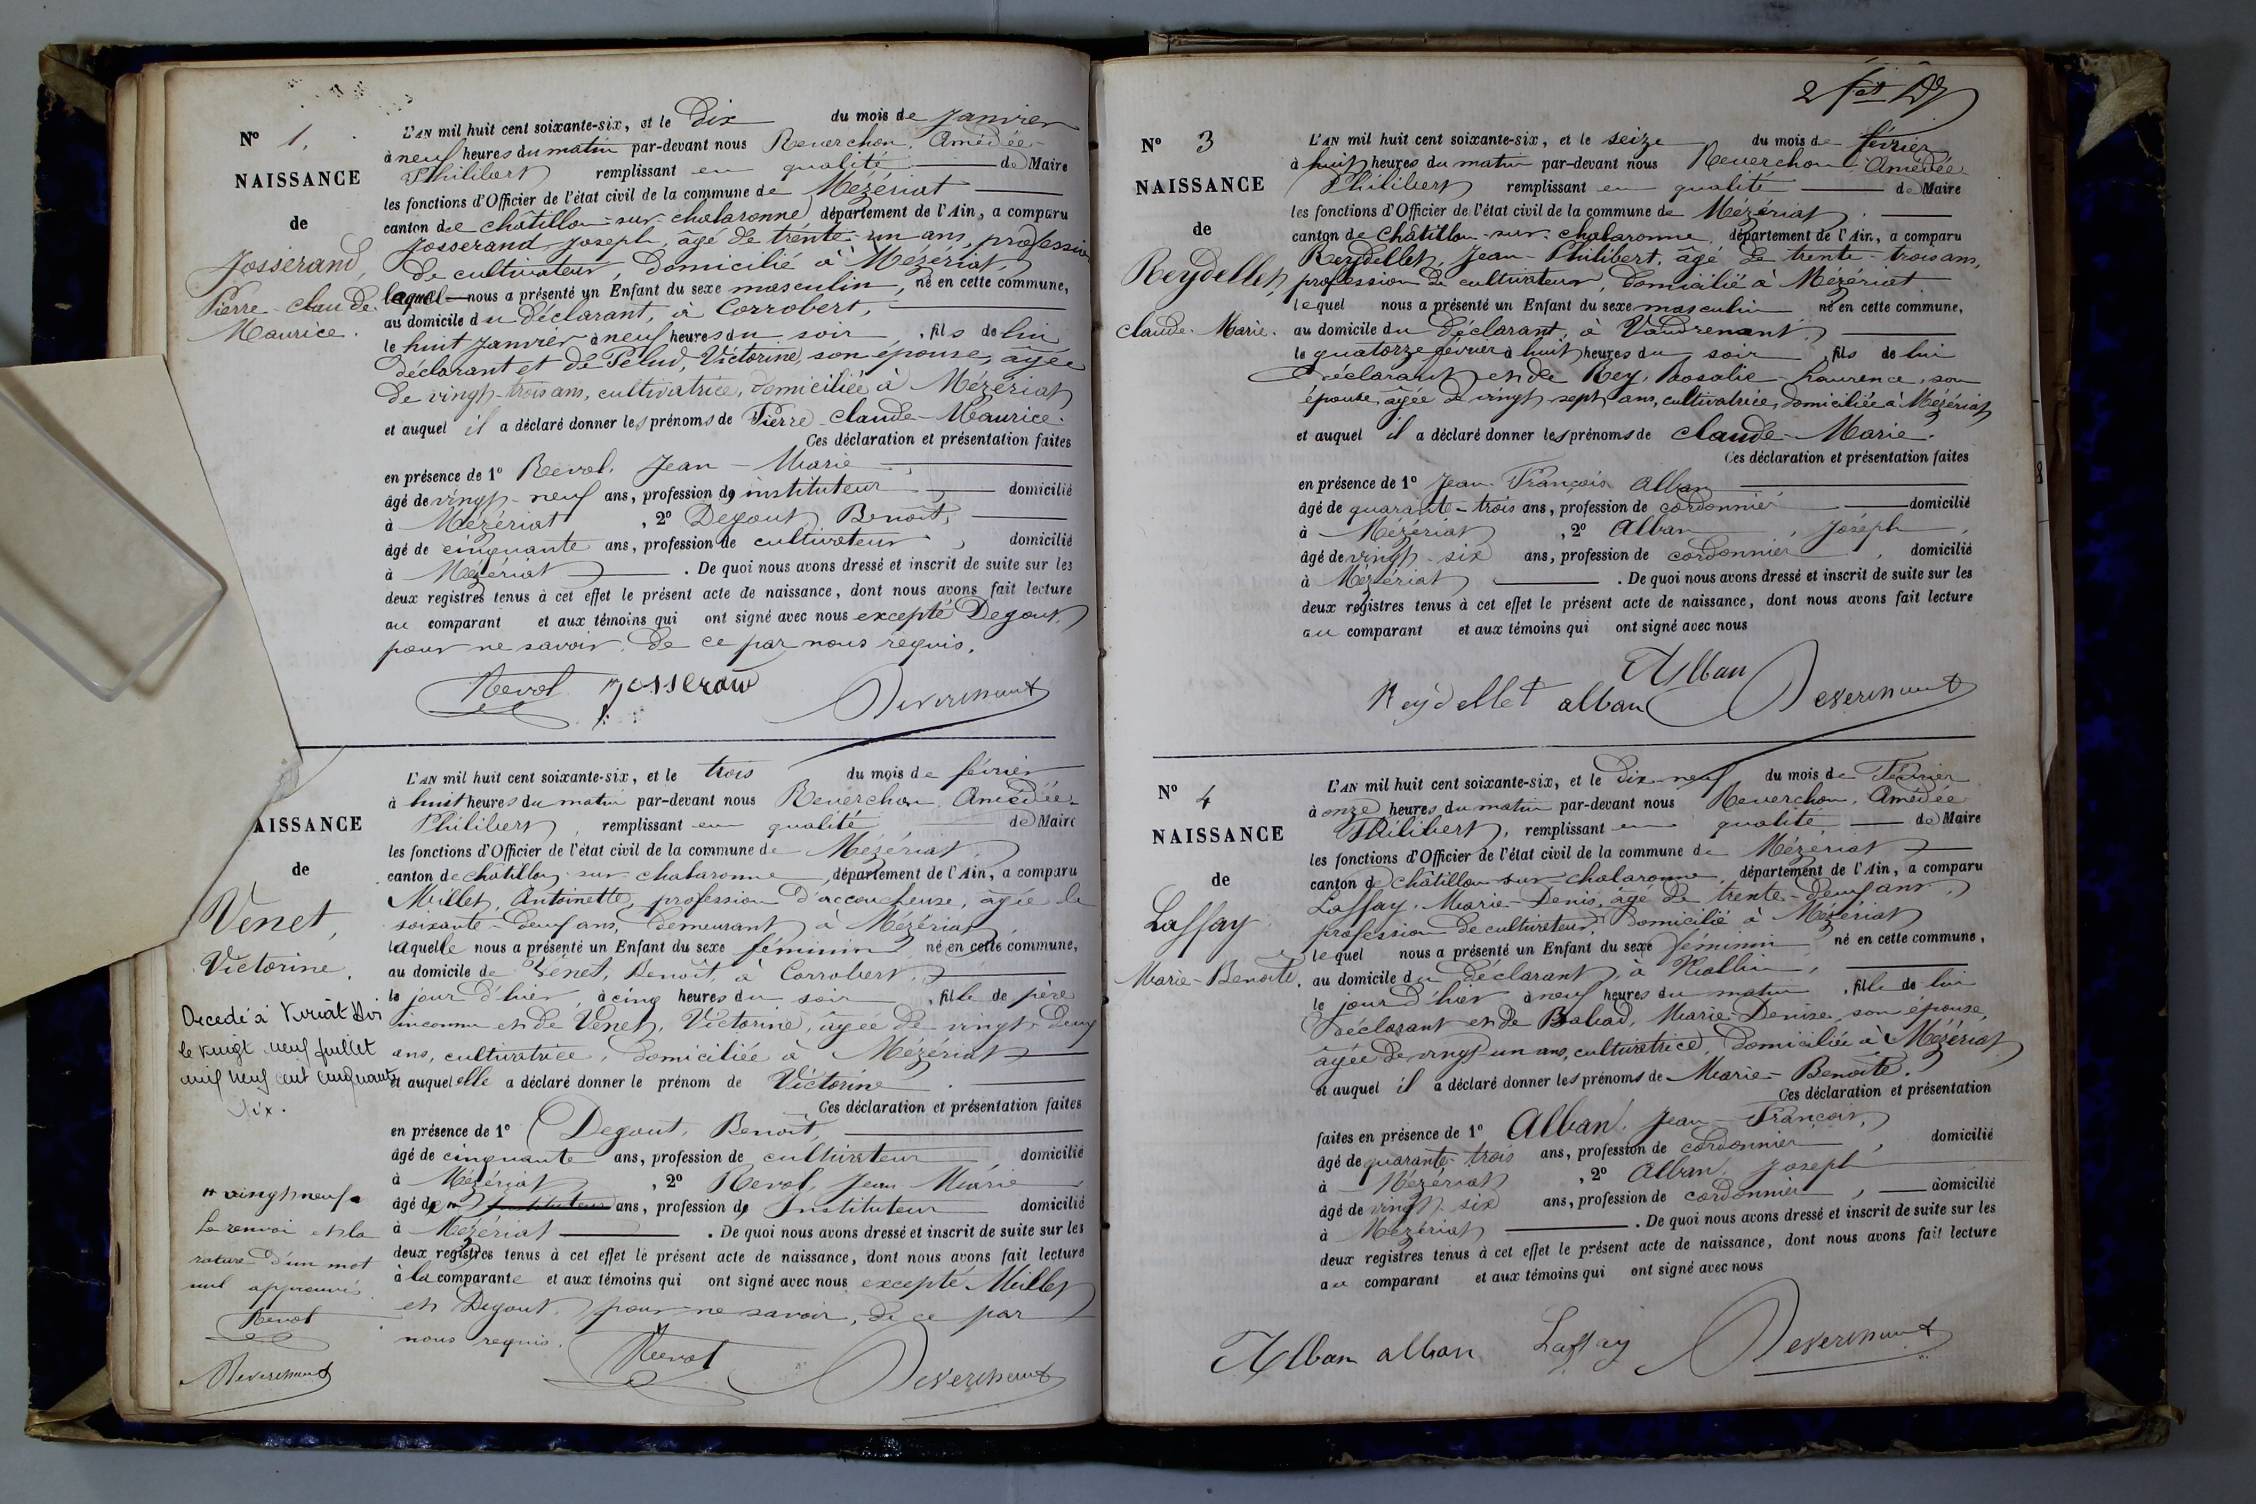 N° 1.
NAISSANCE
de
Josserand,
Pierre-Claude-
Maurice.
L'AN mil huit cent soixante-six, et le Dix du mois de Janvier
à neuf heures du matin par-devant nous Reverchon, Amédée-
Philibert remplissant en qualité de Maire
les fonctions d'Officier de l'état civil de la commune de Mézériat
canton de Châtillon-sur-Chalaronne, département de l'Ain, a comparu
Josserand Joseph, âgé de trente-un ans, profession
de cultivateur, domicilié à Mézériat,
lequel nous a présenté un Enfant du sexe masculin, né en cette commune,
au domicile du déclarant, à Corrobert,
le huit Janvier à neuf heures du soir, fils de lui
déclarant et de Pelud, Victorine, son épouse, âgée
de vingt-trois ans, cultivatrice, domiciliée à Mézériat
et auquel il a déclaré donner les prénoms de Pierre-Claude-Maurice.
Ces déclaration et présentation faites
en présence de 1° Revol, Jean-Marie
âgé de vingt-neuf ans, profession de instituteur, domicilié
à Mézériat, 2° Degout, Benoît,
âgé de cinquante ans, profession de cultivateur, domicilié
à Mézériat. De quoi nous avons dressé et inscrit de suite sur les
deux registres tenus à cet effet le présent acte de naissance, dont nous avons fait lecture
au comparant et aux témoins qui ont signé avec nous excepté Degout,
pour ne savoir, de ce par nous requis.
Revol Josserand Reverchon
AISSANCE
de
Venet,
Victorine.
Décédé à Viriat
le vingt neuf juillet
mil neuf cent cinquante
six.
vingt neuf
Le renvoi et la
rature d'un mot
nul approuvés.
Revol
Reverchon
L'AN mil huit cent soixante-six, et le trois du mois de février
à huit heures du matin par-devant nous Reverchon, Amédée-
Philibert, remplissant en qualité de Maire
les fonctions d'Officier de l'état civil de la commune de Mézériat,
canton de Châtillon-sur-Chalaronne, département de l'Ain, a comparu
Millet, Antoinette, profession d'accoucheuse, âgée de
soixante-deux ans, demeurant à Mézériat,
laquelle nous a présenté un Enfant du sexe féminin né en cette commune,
au domicile de Venet, Benoît, à Corrobert,
le jour d'hier, à cinq heures du soir, fille de père
inconnu et de Venet, Victorine, âgée de vingt-deux
ans, cultivatrice, domiciliée à Mézériat
et auquel elle a déclaré donner le prénom de Victorine.
Ces déclaration et présentation faites
en présence de 1° Degout, Benoît,
âgé de cinquante ans, profession de cultivateur, domicilié
à Mézériat, 2° Revol, Jean-Marie
âgé de ans, profession de Instituteur domicilié
à Mézériat. De quoi nous avons dressé et inscrit de suite sur les
deux registres tenus à cet effet le présent acte de naissance, dont nous avons fait lecture
à la comparante et aux témoins qui ont signé avec nous excepté Millet
et Degout, pour ne savoir, de ce par
nous requis.
Revol Reverchon
N° 3
NAISSANCE
de
Reydellet,
Claude-Marie.
L'AN mil huit cent soixante-six, et le seize du mois de février
à huit heures du matin par-devant nous Reverchon, Amédée
Philibert remplissant en qualité de Maire
les fonctions d'Officier de l'état civil de la commune de Mézériat,
canton de Châtillon-sur-Chalaronne, département de l'Ain, a comparu
Reydellet, Jean-Philibert, âgé de trente-trois ans,
profession de cultivateur, domicilié à Mézériat
lequel nous a présenté un Enfant du sexe masculin né en cette commune,
au domicile du déclarant, à Vaudrenant,
le quatorze février à huit heures du soir fils de lui
déclarant et de Rey, Rosalie-Laurence, son
épouse, âgée de vingt-sept ans, cultivatrice, domiciliée à Mézériat
et auquel il a déclaré donner les prénoms de Claude-Marie.
Ces déclaration et présentation faites
en présence de 1° Jean-François Alban
âgé de quarante-trois ans, profession de cordonnier domicilié
à Mézériat, 2° Alban, Joseph,
âgé de vingt-six ans, profession de cordonnier, domicilié
à Mézériat. De quoi nous avons dressé et inscrit de suite sur les
deux registres tenus à cet effet le présent acte de naissance, dont nous avons fait lecture
au comparant et aux témoins qui ont signé avec nous
Alban
Reydellet alban Reverchon
N° 4
NAISSANCE
de
Laffay
Marie-Benoîte.
L'AN mil huit cent soixante-six, et le Dix-neuf du mois de Février
à onze heures du matin par-devant nous Reverchon, Amédée
Philibert, remplissant en qualité de Maire
les fonctions d'Officier de l'état civil de la commune de Mézériat
canton de Châtillon-sur-Chalaronne, département de l'Ain, a comparu
Laffay, Marie-Denis, âgé de trente-deux ans,
profession de cultivateur, domicilié à Mézériat
lequel nous a présenté un Enfant du sexe féminin né en cette commune,
au domicile du déclarant, à
le jour d'hier à neuf heures du matin, fille de lui
déclarant et de Babad, Marie-Denise, son épouse,
âgée de vingt-un ans, cultivatrice, domiciliée à Mézériat
et auquel il a déclaré donner les prénoms de Marie-Benoîte.
Ces déclaration et présentation
faites en présence de 1° Alban, Jean-François,
âgé de quarante-trois ans, profession de cordonnier, domicilié
à Mézériat, 2° Alban, Joseph
âgé de vingt-six ans, profession de cordonnier, domicilié
à Mézériat. De quoi nous avons dressé et inscrit de suite sur les
deux registres tenus à cet effet le présent acte de naissance, dont nous avons fait lecture
au comparant et aux témoins qui ont signé avec nous
Alban alban Laffay Reverchon